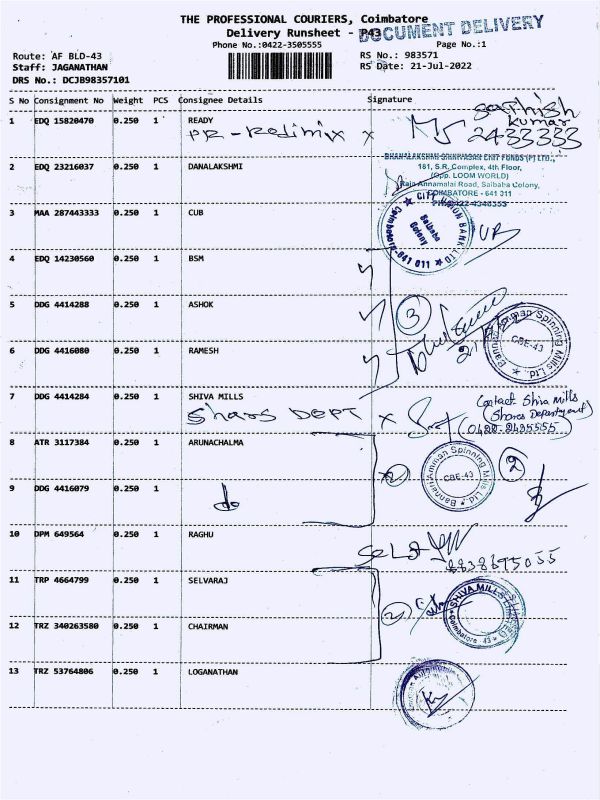 THE PROFESSIONAL COURIERS, Coimbatore
DOCUMENT DELIVERY
Delivery Runsheet - P43
Phone No.:0422-3505555
Page No.:1
Route: AF BLD-43
RS No.: 983571
Staff: JAGANATHAN
RS Date: 21-Jul-2022
DRS No.: DCJB98357101
S No Consignment No Weight PCS Consignee Details Signature
1 EDQ 15820470 0.250 1 READY
PR-Redimix x
Sathish
Kumar
2433333
2 EDQ 23216037 0.250 1 DANALAKSHMI
DHANALAKSHMI SRINIVASAN CHIT FUNDS (P) LTD.,
181, S.R. Complex, 4th Floor,
(Opp. LOOM WORLD)
Raja Annamalai Road, Saibaba Colony,
COIMBATORE - 641 011
3 MAA 287443333 0.250 1 CUB
CITY UNION BANK LTD
Saibaba
Colony
Coimbatore-641 011
4 EDQ 14230560 0.250 1 BSM
5 DDG 4414288 0.250 1 ASHOK
3
Bannari Amman Spinning Mills Ltd.
CBE-43
6 DDG 4416080 0.250 1 RAMESH
7 DDG 4414284 0.250 1 SHIVA MILLS
Shars DEPT x
Contact Shiva Mills
(Shares Department)
(0422-2435555)
8 ATR 3117384 0.250 1 ARUNACHALMA
2
Bannari Amman Spinning Mills Ltd.
CBE-43
2
9 DDG 4416079 0.250 1
do
10 DPM 649564 0.250 1 RAGHU
8838695055
11 TRP 4664799 0.250 1 SELVARAJ
2
SHIVA MILLS
Coimbatore - 43
12 TRZ 340263580 0.250 1 CHAIRMAN
13 TRZ 53764806 0.250 1 LOGANATHAN